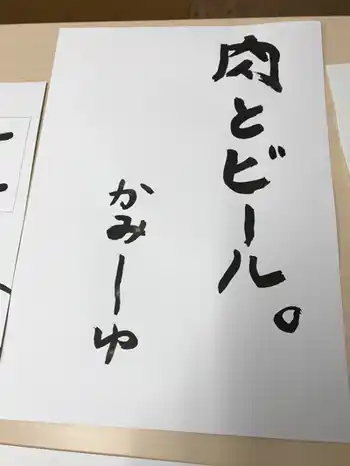 肉とビール。
かみーゆ